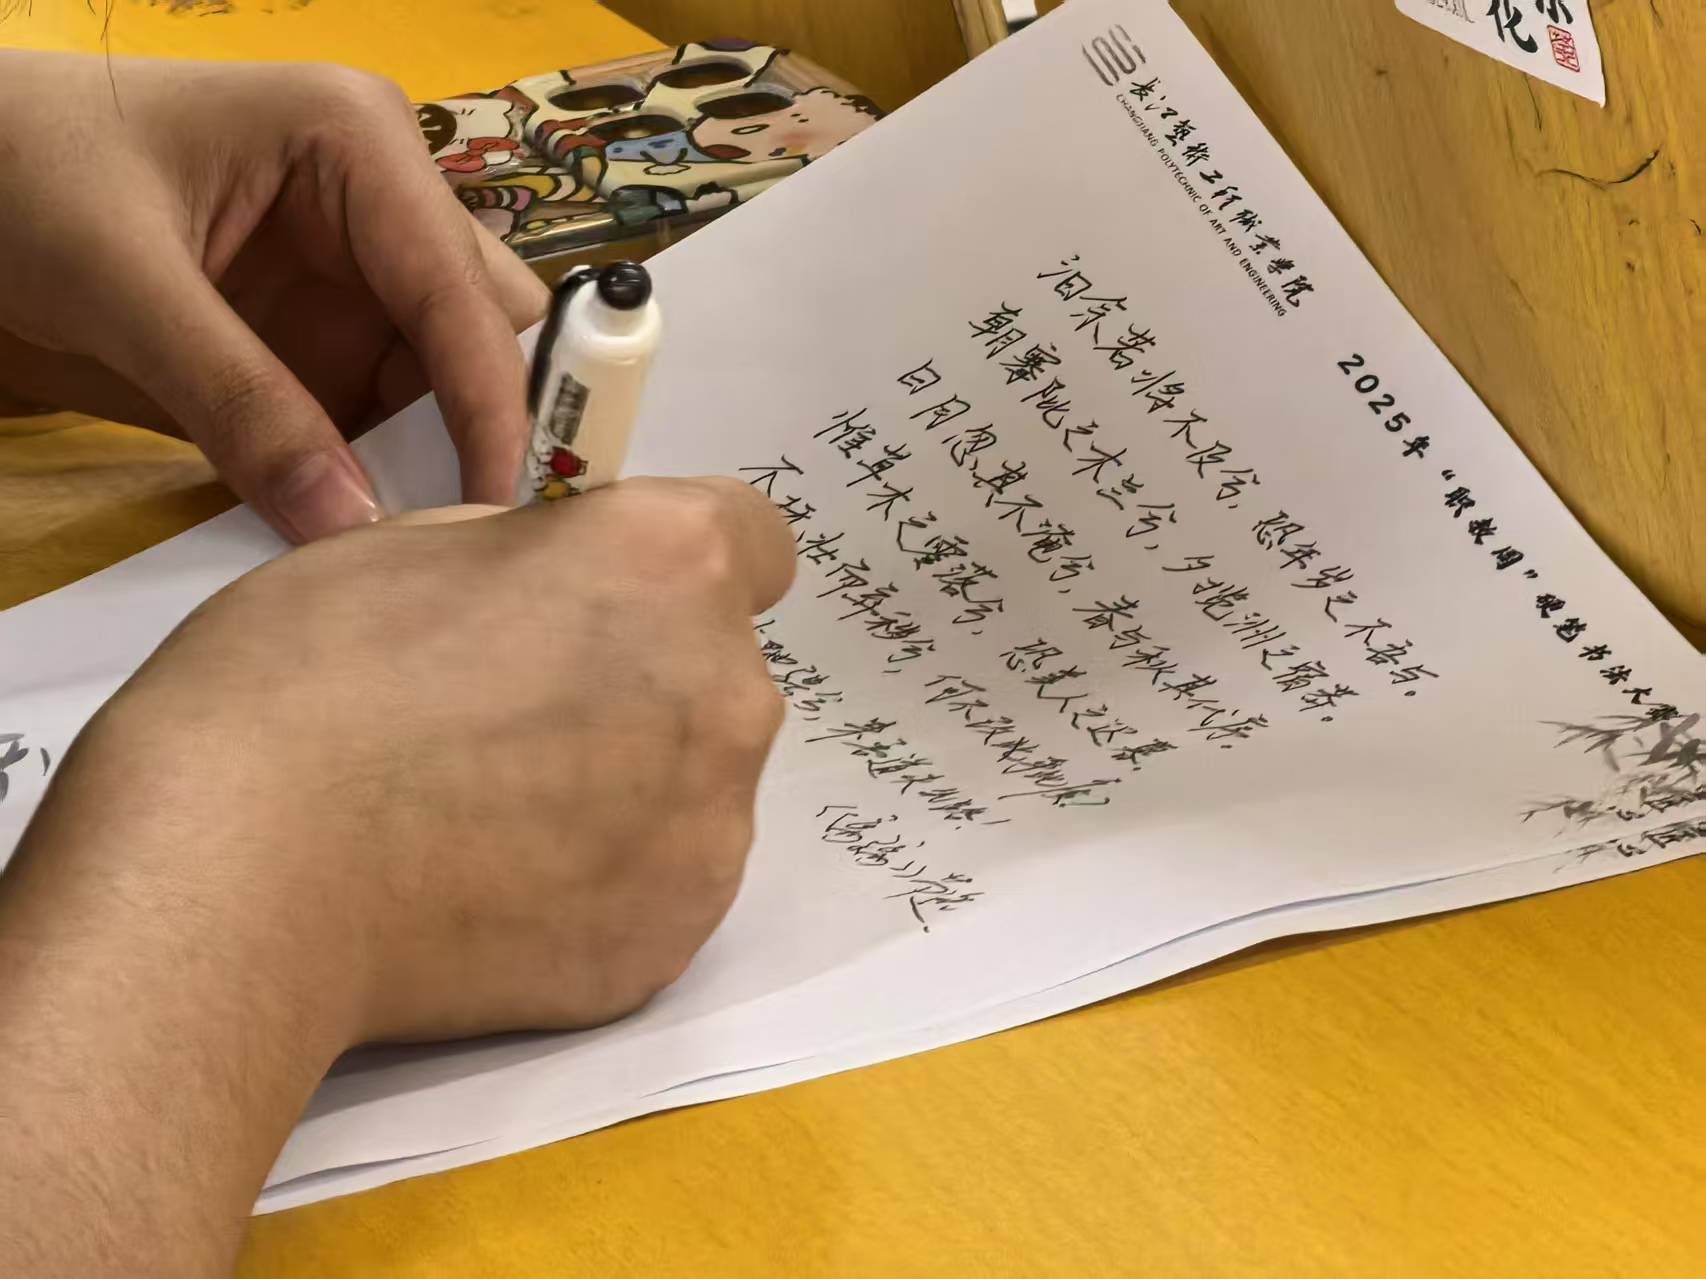 長江藝術工程職業學院
CHANGJIANG POLYTECHNIC OF ART AND ENGINEERING
2025年“职教周”硬笔书法大赛
汩余若将不及兮，恐年岁之不吾与。
朝搴阰之木兰兮，夕揽洲之宿莽。
日月忽其不淹兮，春与秋其代序。
惟草木之零落兮，恐美人之迟暮。
不抚壮而弃秽兮，何不改此度？
驰骋兮，来吾道夫先路！
《离骚》节选.
化